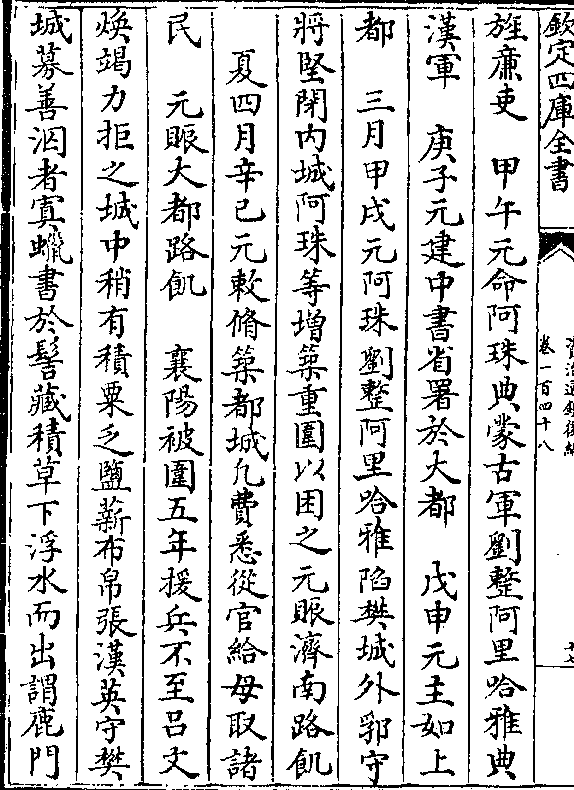 欽定四庫全書
資治通鑑後編
卷一百四十八
十七
旌亷吏　甲午元命阿珠典蒙古軍劉整阿里哈雅典
漢軍　庚子元建中書省署於大都　戊申元主如上
都　三月甲戌元阿珠劉整阿里哈雅陷樊城外郛守
將堅閉内城阿珠等增築重圍以困之元賑濟南路飢
夏四月辛巳元敕脩築都城凡費悉從官給毋取諸
民　元賑大都路飢　襄陽被圍五年援兵不至吕文
煥竭力拒之城中稍有積粟乏鹽薪布帛張漢英守樊
城募善泅者寘蠟書於髻藏積草下浮水而出謂鹿門